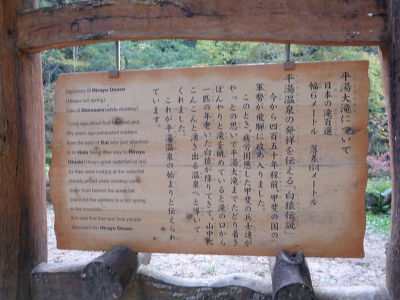 平湯大滝について
日本の滝百選
幅6メートル 落差64メートル
平湯温泉の発祥を伝える「白猿伝説」
今から四百五十年程前、甲斐の国の
軍勢が飛騨に攻め入りました。
このとき、疲労困憊した甲斐の兵士達が
やっとの思いで平湯大滝までたどり着き
ぼんやりと滝を眺めていると滝の口から
一匹の年老いた白猿が降りてきて、山中
こんこんと湧き出る温泉へと導いて
くれました。
これが平湯温泉の始まりと伝えられ
ています。
Discovery of Hirayu Onsen
(Hirayu hot spring),
Tale of Shirozaru(white monkey)
"Long ago about four hundred and
fifty years ago,exhausted soldiers
from the land of Kai who just attacked
in to Hida found their way to Hirayu
Ohtaki(Hirayu great waterfall)at last.
As they were looking at the waterfall
blankly,an old white monkey came
down from behind the water fall
and it led the soldiers to a hot spring
in the mountain."
It is said that that was how people
discovered the Hirayu Onsen.